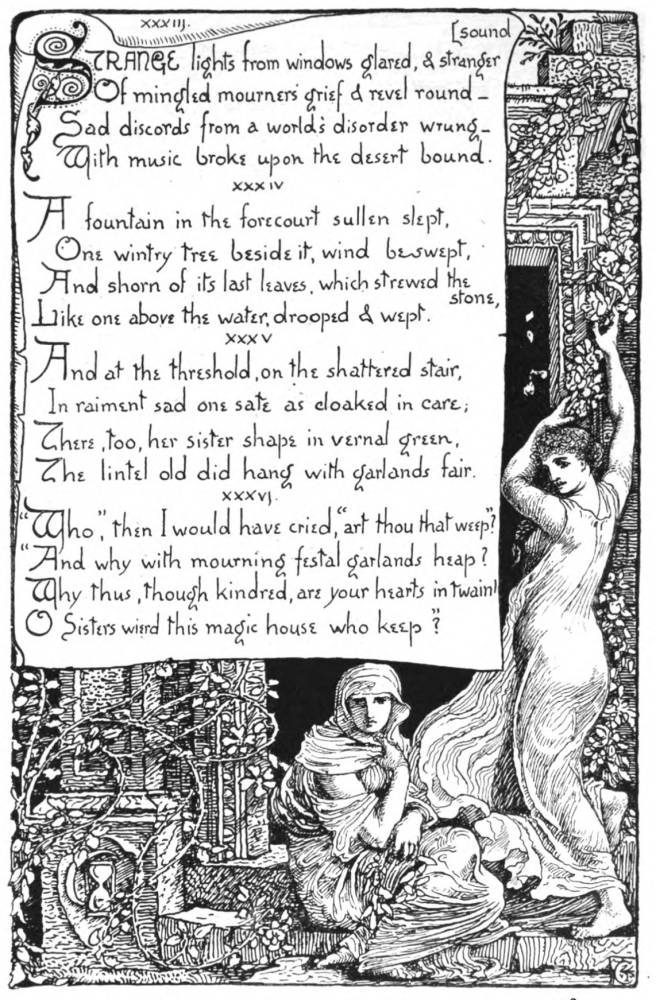 XXXIIJ.
[sound
STRANGE lights from windows glared, & stranger
Of mingled mourners' grief & revel round –
Sad discords from a world's disorder wrung –
With music broke upon the desert bound.
XXXIV
A fountain in the forecourt sullen slept,
One wintry tree beside it, wind beswept,
And shorn of its last leaves, which strewed the
stone,
Like one above the water, drooped & wept.
XXXV
And at the threshold, on the shattered stair,
In raiment sad one sate as cloaked in care;
There, too, her sister shape in vernal green,
The lintel old did hang with garlands fair.
XXXVJ.
"Who", then I would have cried, "art thou that weep"?
"And why with mourning festal garlands heap?
Why thus, though kindred, are your hearts in twain!
O Sisters wierd this magic house who keep"?